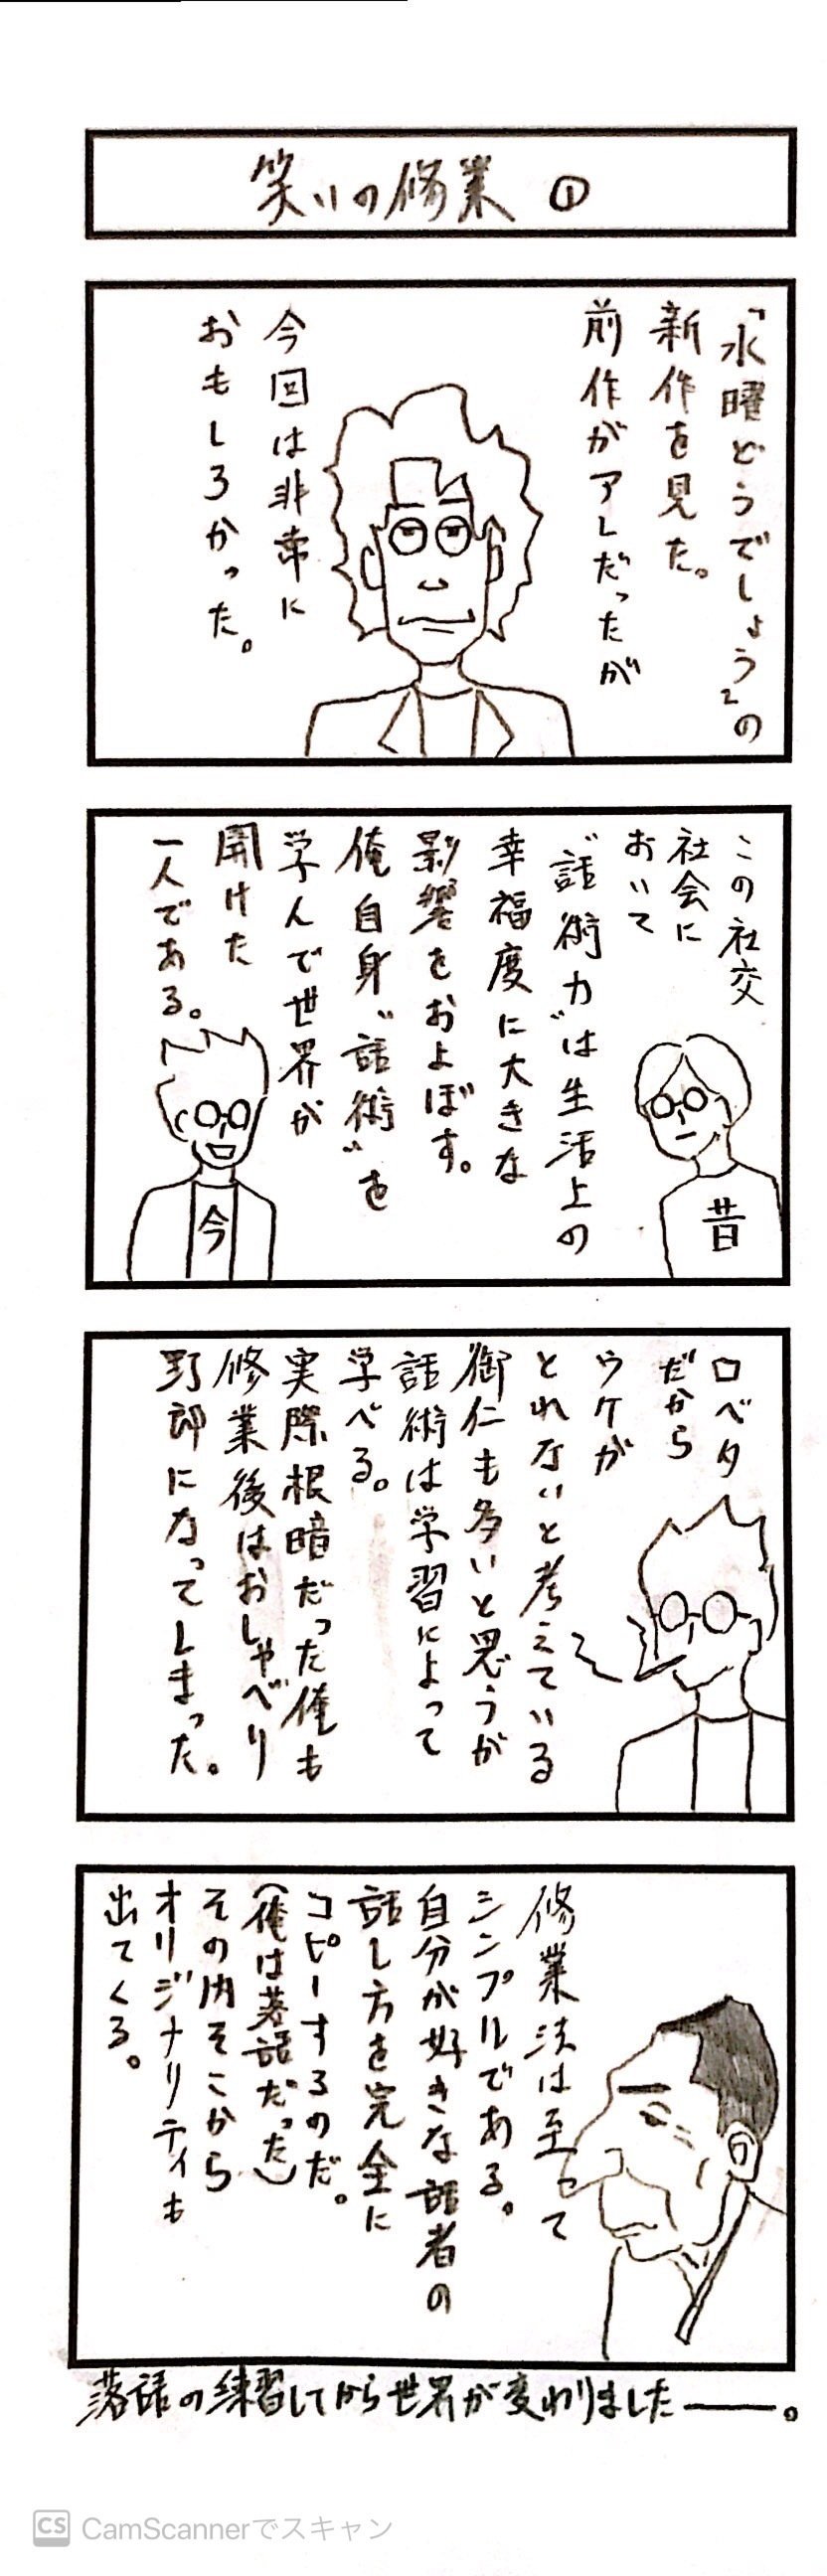 笑いの修業 ①
「水曜どうでしょう」の
新作を見た。
前作がアレだったが
今回は非常に
おもしろかった。
この社交
社会に
おいて
〝話術力〟は生活上の
幸福度に大きな
影響をおよぼす。
俺自身〝話術〟を
学んで世界が
開けた
一人である。
昔
今
口ベタ
だから
ウケが
とれないと考えている
御仁も多いと思うが
話術は学習によって
学べる。
実際根暗だった俺も
修業後はおしゃべり
野郎になってしまった。
修業法は至って
シンプルである。
自分が好きな話者の
話し方を完全に
コピーするのだ。
(俺は落語だった)
その内そこから
オリジナリティも
出てくる。
落語の練習してから世界が変わりました――。
CS CamScannerでスキャン